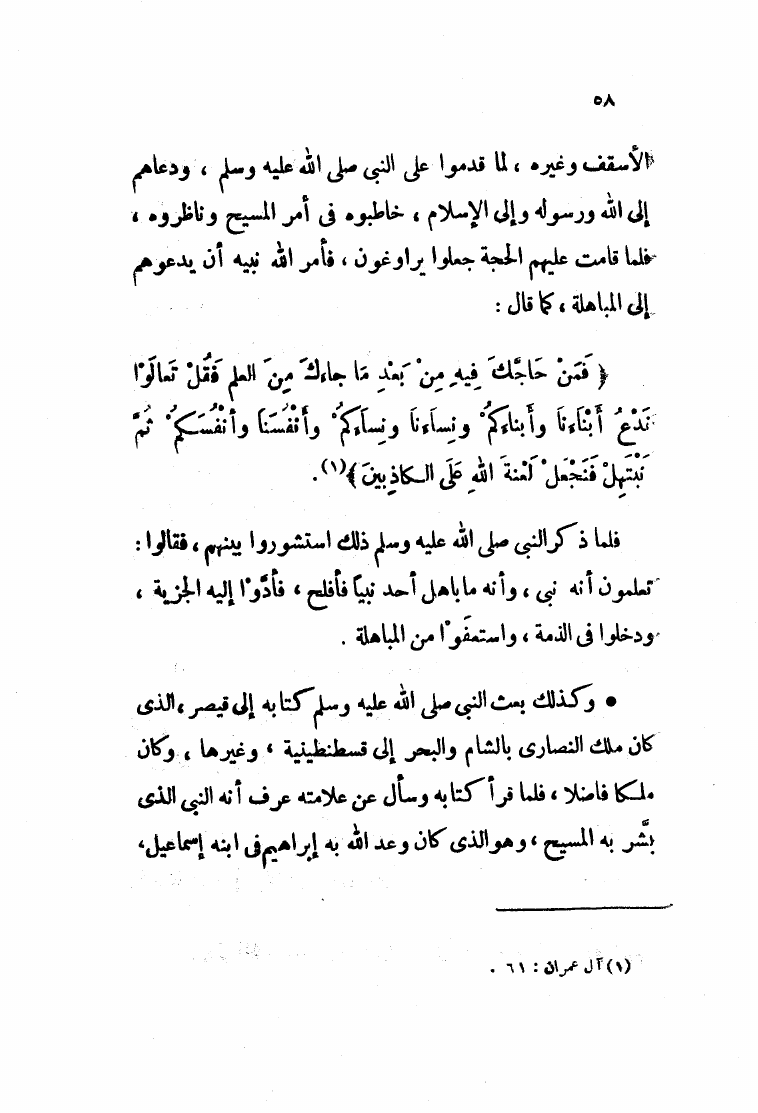 ٥٨
الأسقف وغيره ، لما قدموا على النبى صلى الله عليه وسلم ، ودعاهم
إلى الله ورسوله وإلى الإسلام ، خاطبوه فى أمر المسيح وناظروه ،
فلما قامت عليهم الحجة جعلوا يراوغون ، فأمر الله نبيه أن يدعوهم
إلى المباهلة ، كما قال :
﴿ فَمَنْ حَاجَّكَ فِيهِ مِنْ بَعْدِ مَا جاءكَ مِنَ العلم فَقُلْ تَعالَوْا
نَدْعُ أَبْنَاءنَا وأَبناءكُمْ ونِساءنَا ونِساءكُمْ وأَنْفُسَنَا وأنْفُسَكمُ ْ ثُمَّ
نَبْتَهِلْ فَنَجْعَل ْ لَعْنةَ اللهِ عَلَى الـكاذِبِينَ ﴾(١).
فلما ذكر النبى صلى الله عليه وسلم ذلك استشوروا بينهم ، فقالوا :
تعلمون أنه نبى ، وأنه ما باهل أحد نبيًا فأفلح ، فأدَّوْا إليه الجزية ،
ودخلوا فى الذمة ، واستعفَوْا من المباهلة .
• وكذلك بعث النبى صلى الله عليه وسلم كتابه إلى قيصر ، الذى
كان ملك النصارى بالشام والبحر إلى قسطنطينية ، وغيرها ، وكان
ملـكا فاضلا ، فلما قرأ كتابه وسأل عن علامته عرف أنه النبى الذى
بشَّر به المسيح ، وهو الذى كان وعد الله به إبراهيم فى ابنه إسماعيل ،
(١) آل عمران : ٦١ .